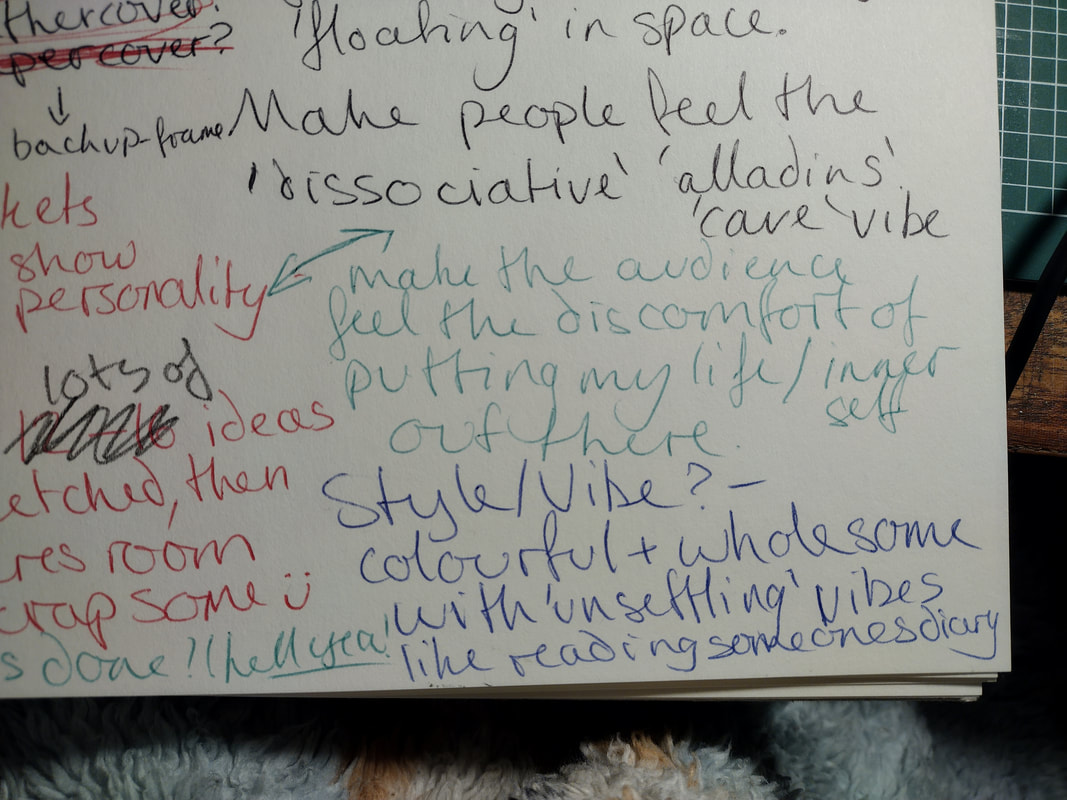 thercover?
percover?
backup-frame
kets
show
personality
lots of
ideas
etched, then
res room
crap some
s done!! (hell yea!
'floating' in space.
Make people feel the
'dissociative' 'alladins'
'cave' vibe
make the audience
feel the discomfort of
putting my life/inner
self
out there.
Style/Vibe? -
colourful + wholesome
with 'unsettling' vibes
like reading someones diary